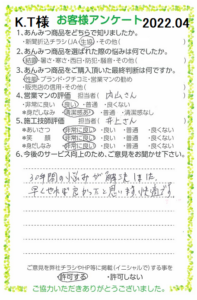 K.T様 お客様アンケート 2022.04
1.あんみつ商品をどちらで知りましたか。
・新聞折込チラシ(JA)・生協・その他( )
2.あんみつ商品を選ばれた際の悩みは何でしたか。
・結露・暑さ・寒さ・西日・防犯・騒音・その他( )
3.あんみつ商品をご購入頂いた最終判断は何ですか。
・性能・ブランド・クチコミ・営業マンの勧め
・販売店の信用・その他( )
4.営業マンの評価 担当者( 内山さん )
・非常に良い ・良い ・普通 ・良くない
・身だしなみ ・清潔感あり ・普通 ・清潔感なし
5.施工技師評価 担当者( 井上さん )
・あいさつ ・非常に良い ・良い ・普通 ・良くない
・笑顔 ・非常に良い ・良い ・普通 ・良くない
・身だしなみ ・非常に良い ・良い ・普通 ・良くない
6.今後のサービス向上のため、ご意見をお聞かせ下さい。
30年間の悩みが解決しました。
早くやれば良かったと思い 快適です。
ご意見を弊社チラシやHP等に掲載(イニシャルで)する事を
・許可する ・許可しない
ご協力いただきありがとうございました。